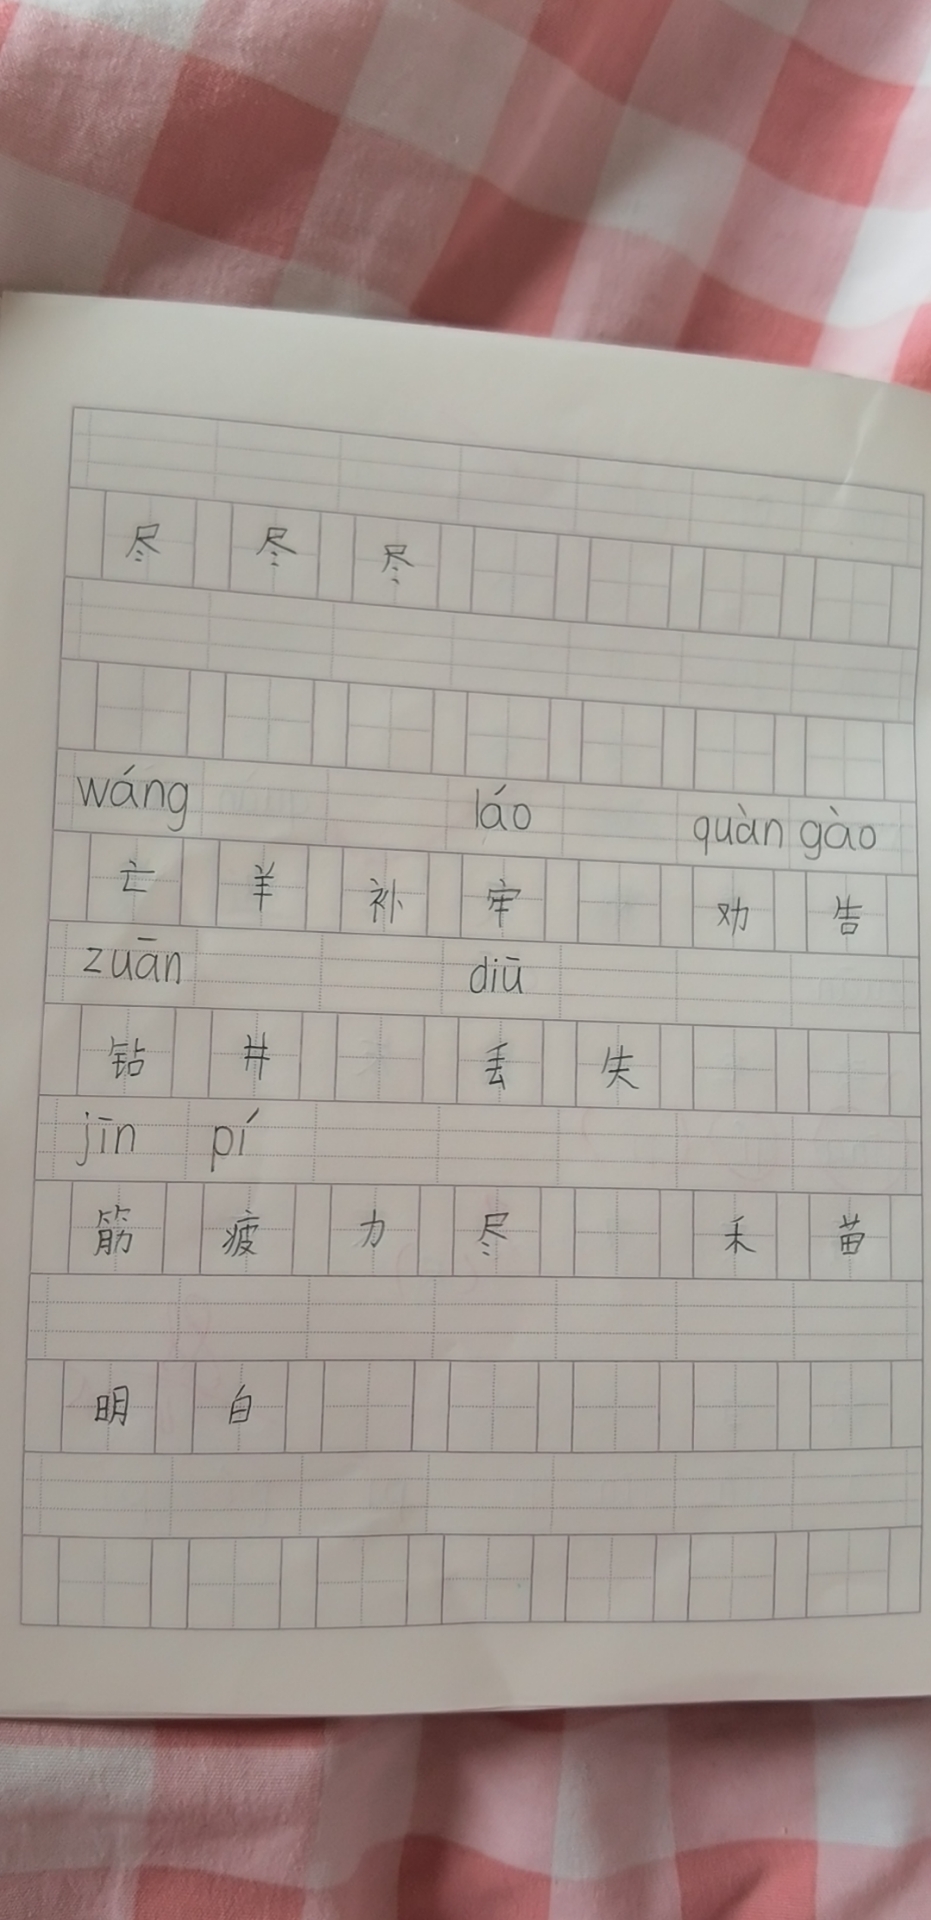 尽 尽 尽
wáng láo quàn gào
亡 羊 补 牢 劝 告
zuān diū
钻 井 丢 失
jīn pí
筋 疲 力 尽 禾 苗
明 白